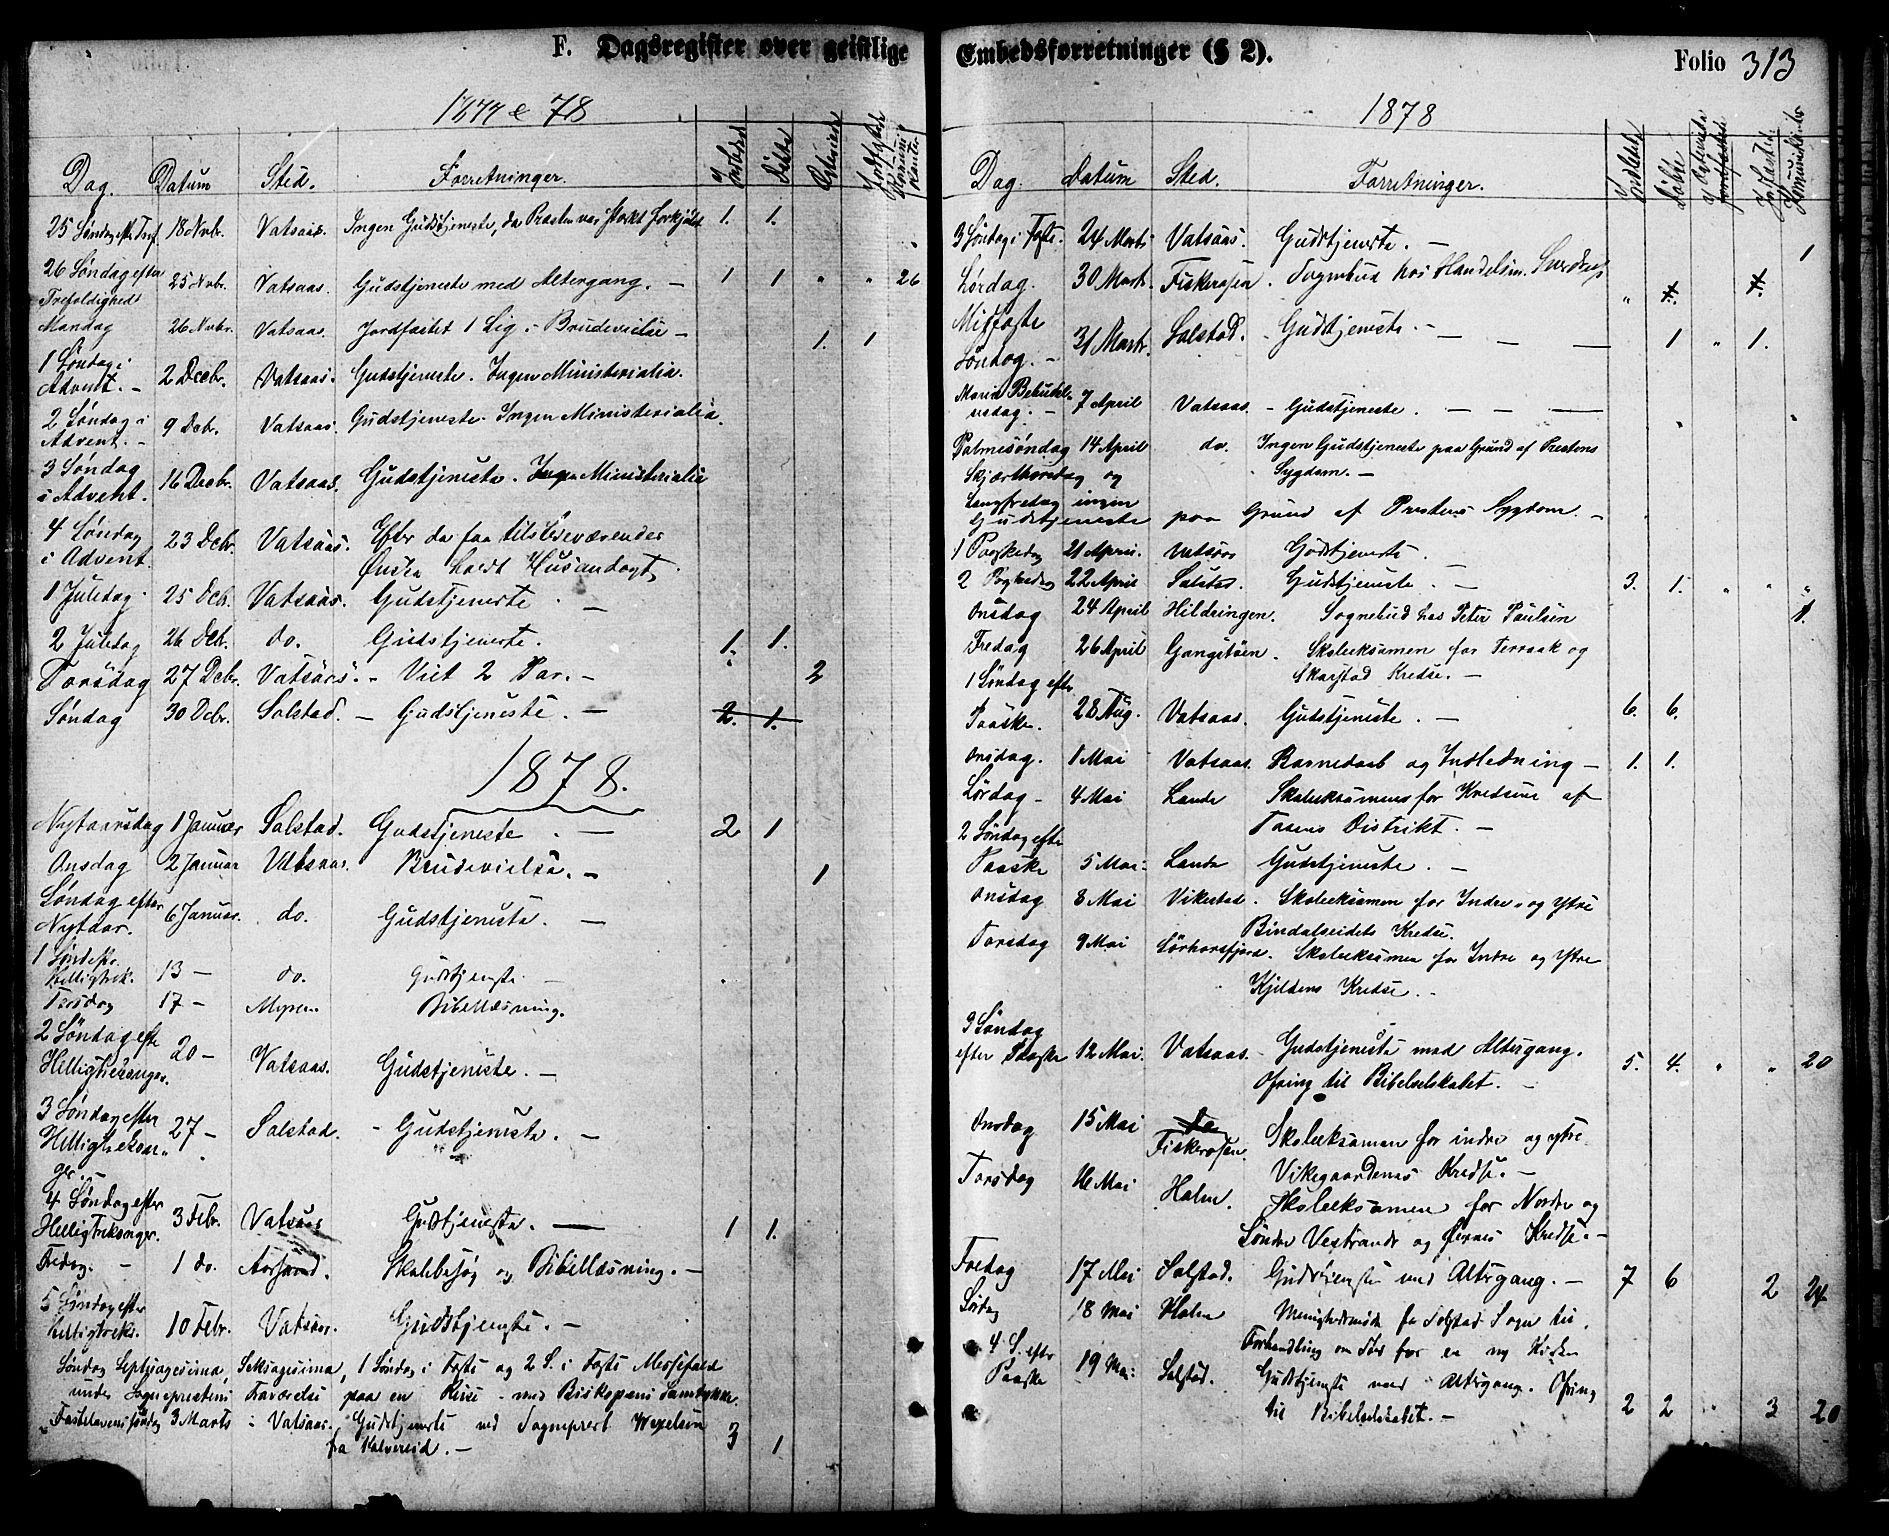 F. Dagsregister over geistlige
1877 & 78
Dag. Datum Sted. Forretninger. Døbte
25 Søndag eft. Tref. 18 Nvbr. Vatsaas. Ingen Gudstjeneste, da Præsten var stærkt forkjølet 1. 1.
26 Søndag efter
Trefoldighed 25 Nvbr. Vatsaas. Gudstjeneste med Altergang. — 1 1 " " 26
Mandag 26 Nvbr. Vatsaas. Jordfæstet 1 Lig. – Brudevielse – 1. 1
1 Søndag i
Advent. – 2 Decbr. Vatsaas. Gudstjeneste. Ingen Ministerialia.
2 Søndag i
Advent. – 9 Dcbr. Vatsaas. Gudstjeneste. Ingen Ministerialia.
3 Søndag
i Advent. 16 Decbr. Vatsaas. Gudstjeneste. Ingen Ministerialia
4 Søndag
i Advent. 23 Dcbr. Vatsaas. Efter de faa tilstedeværendes
Ønske holdt Husandagt.
1 Juledag 25 Dcb. Vatsaas. Gudstjeneste. —
2 Juledag 26 Dcb. do. Gudstjeneste. 1. 1.
Torsdag 27 Dcbr. Vatsaas. – Viet 2 Par. – 2
Søndag 30 Dcbr. Solstad. – Gudstjeneste. — 2. 1.
1878.
Nytaarsdag 1 Januar Solstad. Gudstjeneste. — 2 1
Onsdag 2 Januar Vatsaas. Brudevielse. – 1
Søndag efter
Nytaar. 6 Januar. do. Gudstjeneste. —
1 Sønd. eft.
Helligtrek. 13 – do. Gudstjeneste —
Torsdag 17 – Myren. Bibellæsning.
2 Søndag eft
Helligtrekonger. 20 – Vatsaas. Gudstjeneste. —
3 Søndag efter
Helligtrekon- 27 – Solstad. – Gudstjeneste. —
ger. –
4 Søndag efter
Helligtrekonger. 3 Febr. Vatsaas Gudstjeneste. — 1 1.
Fredag. – 1 do. Skolebesøg og Bibellæsning. –
5 Søndag efter
Helligtreks. 10 Febr. Vatsaas. Gudstjeneste. –
Søndag Septuagesima, Seksagesima, 1 Søndag i Faste og 2 S. i Faste Messefald
under Sognepræstens Fraværelse paa en Reise – med Biskopens Samtykke.
Fastelavenssøndag 3 Marts i Vatsaas. Gudstjeneste ved Sogneprest Wexelsen
fra Kolvereid. – 3 1
Embedsforretninger (§ 2).
Folio 313
1878
Dag. Datum Sted. Forretninger. Døbte
3 Søndag i Faste. 24 Marts Vatsaas. Gudstjeneste. –
Lørdag. 30 Marts. Fiskerosen. Sognebud hos Handelsm. 1
Midfaste
Søndag. – 31 Marts. Solstad. – Gudstjeneste. – — — — 1 " 1.
Maria Bebudel-
sesdag. – 7 April Vatsaas. – Gudstjeneste. — — —
Palmesøndag 14 April do. Ingen Gudstjeneste paa Grund af Prestens
Sygdom. –
Skjærthorsdag og
Langfredag ingen
Gudstjeneste paa Grund af Prestens Sygdom. –
1 Paaskedag 21 April. Vatsaas Gudstjeneste.
2 Paaskedag 22 April Solstad. Gudstjeneste. — 3. 1. " " "
Onsdag 24 April Hildringen. Sognebud hos Peter Paulsen 1.
Fredag 26 April Gangstøen. Skoleeksamen for Terraak og
Skarstad Kredse. –
1 Søndag eftr
Paaske. 28 Aug. Vatsaas. Gudstjeneste. – 6. 6.
Onsdag. 1 Mai Vatsaas. Barnedaab og Indledning – 1. 1.
Lørdag – 4 Mai Lande Skoleeksamens for Kredsene af
Tosens Distrikt. –
2 Søndag efte
Paaske 5 Mai. Lande Gudstjeneste. –
Onsdag 8 Mai Vikestad. Skoleeksamen for Indre- og Ytre
Bindalseidets Kredse.
Torsdag 9 Mai Sørhorsfjord. Skoleeksamen for Indre og Ytre
Kjeldens Kredse. –
3 Søndag
efter Paaske 12 Mai. Vatsaas. – Gudstjeneste med Altergang.
Ofring til Bibelselskabet. – 5. 4. " " 20
Onsdag 15 Mai do
Fiskerosen. Skoleeksamen for indre og ytre
Vikegaardenes Kredse. –
Torsdag 16 Mai Holm. Skoleeksamen for Nordre og
Søndre Vestrands og Øernes Kredse. –
Fredag 17 Mai Solstad. Gudstjeneste med Altergang. – 7 6 2 24
Lørdag 18 Mai Holm Menighedsmøde for Solstad Sogn til
Forhandling om for en ny Kirke
4 S. efter
Paaske 19 Mai Solstad. Gudstjeneste med Altergang. Ofring
til Bibelselskabet. – 2 2 " 3 20